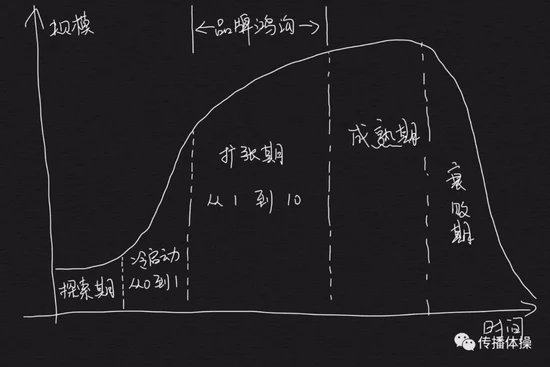 规模
←品牌鸿沟→
扩张期
从1到10
成熟期
衰败期
冷启动
从0到1
探索期
时间
传播体操